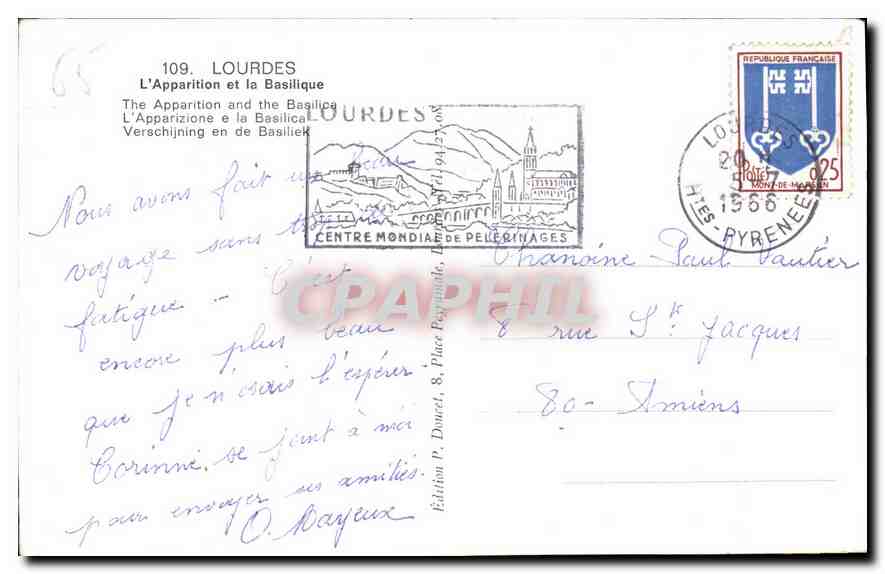 65
109. LOURDES
L'Apparition et la Basilique
The Apparition and the Basilica
L'Apparizione e la Basilica
Verschijning en de Basiliek
LOURDES
CENTRE MONDIAL DE PELERINAGES
REPUBLIQUE FRANÇAISE
POSTES
0,25
MONT-DE-MARSAN
LOURDES
20 H
5-7
1966
HTES-PYRENEES
Nous avons fait un beau
voyage sans trop de
fatigue - C'est
encore plus beau
que je n'osais l'espérer
Corinne se joint à moi
pour envoyer ses amitiés.
O. Mayeux
Édition P. Doucet, 8, Place Peyramale, Lourdes, Tél. 94-27-08
Chanoine Paul Vautier
8 rue St Jacques
80 - Amiens
CPAPHIL